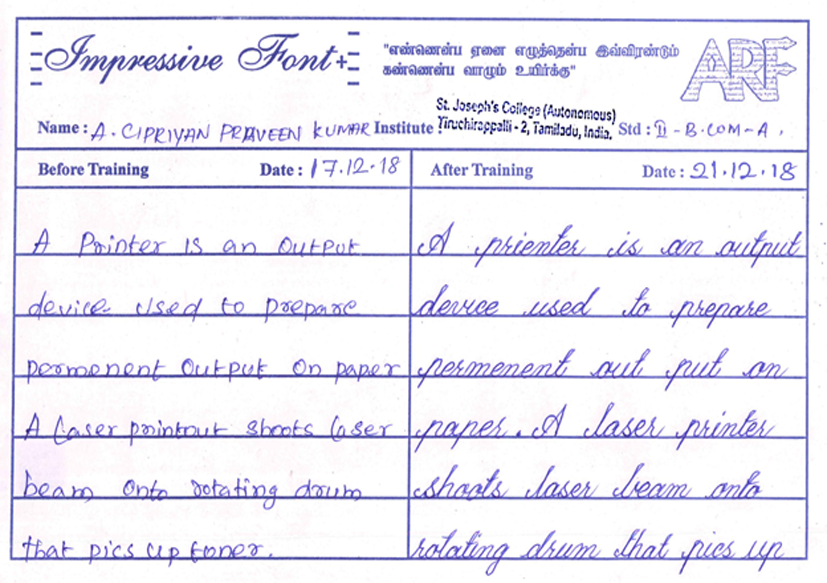 Impressive Font+
"எண்ணென்ப ஏனை எழுத்தென்ப இவ்விரண்டும்
கண்ணென்ப வாழும் உயிர்க்கு"
ARF
Name : A. CIPRIYAN PRAVEEN KUMAR Institute St. Joseph's College (Autonomous) Tiruchirappalli - 2, Tamiladu, India. Std : II - B.COM - A.
Before Training Date : 17.12.18
A Printer is an output
device used to prepare
permenent output on paper
A laser printout shoots laser
beam onto rotating drum
that pics up toner.
After Training Date : 21.12.18
A prienter is an output
device used to prepare
permenent out put on
paper. A laser printer
shoots laser beam onto
rotating drum that pics up